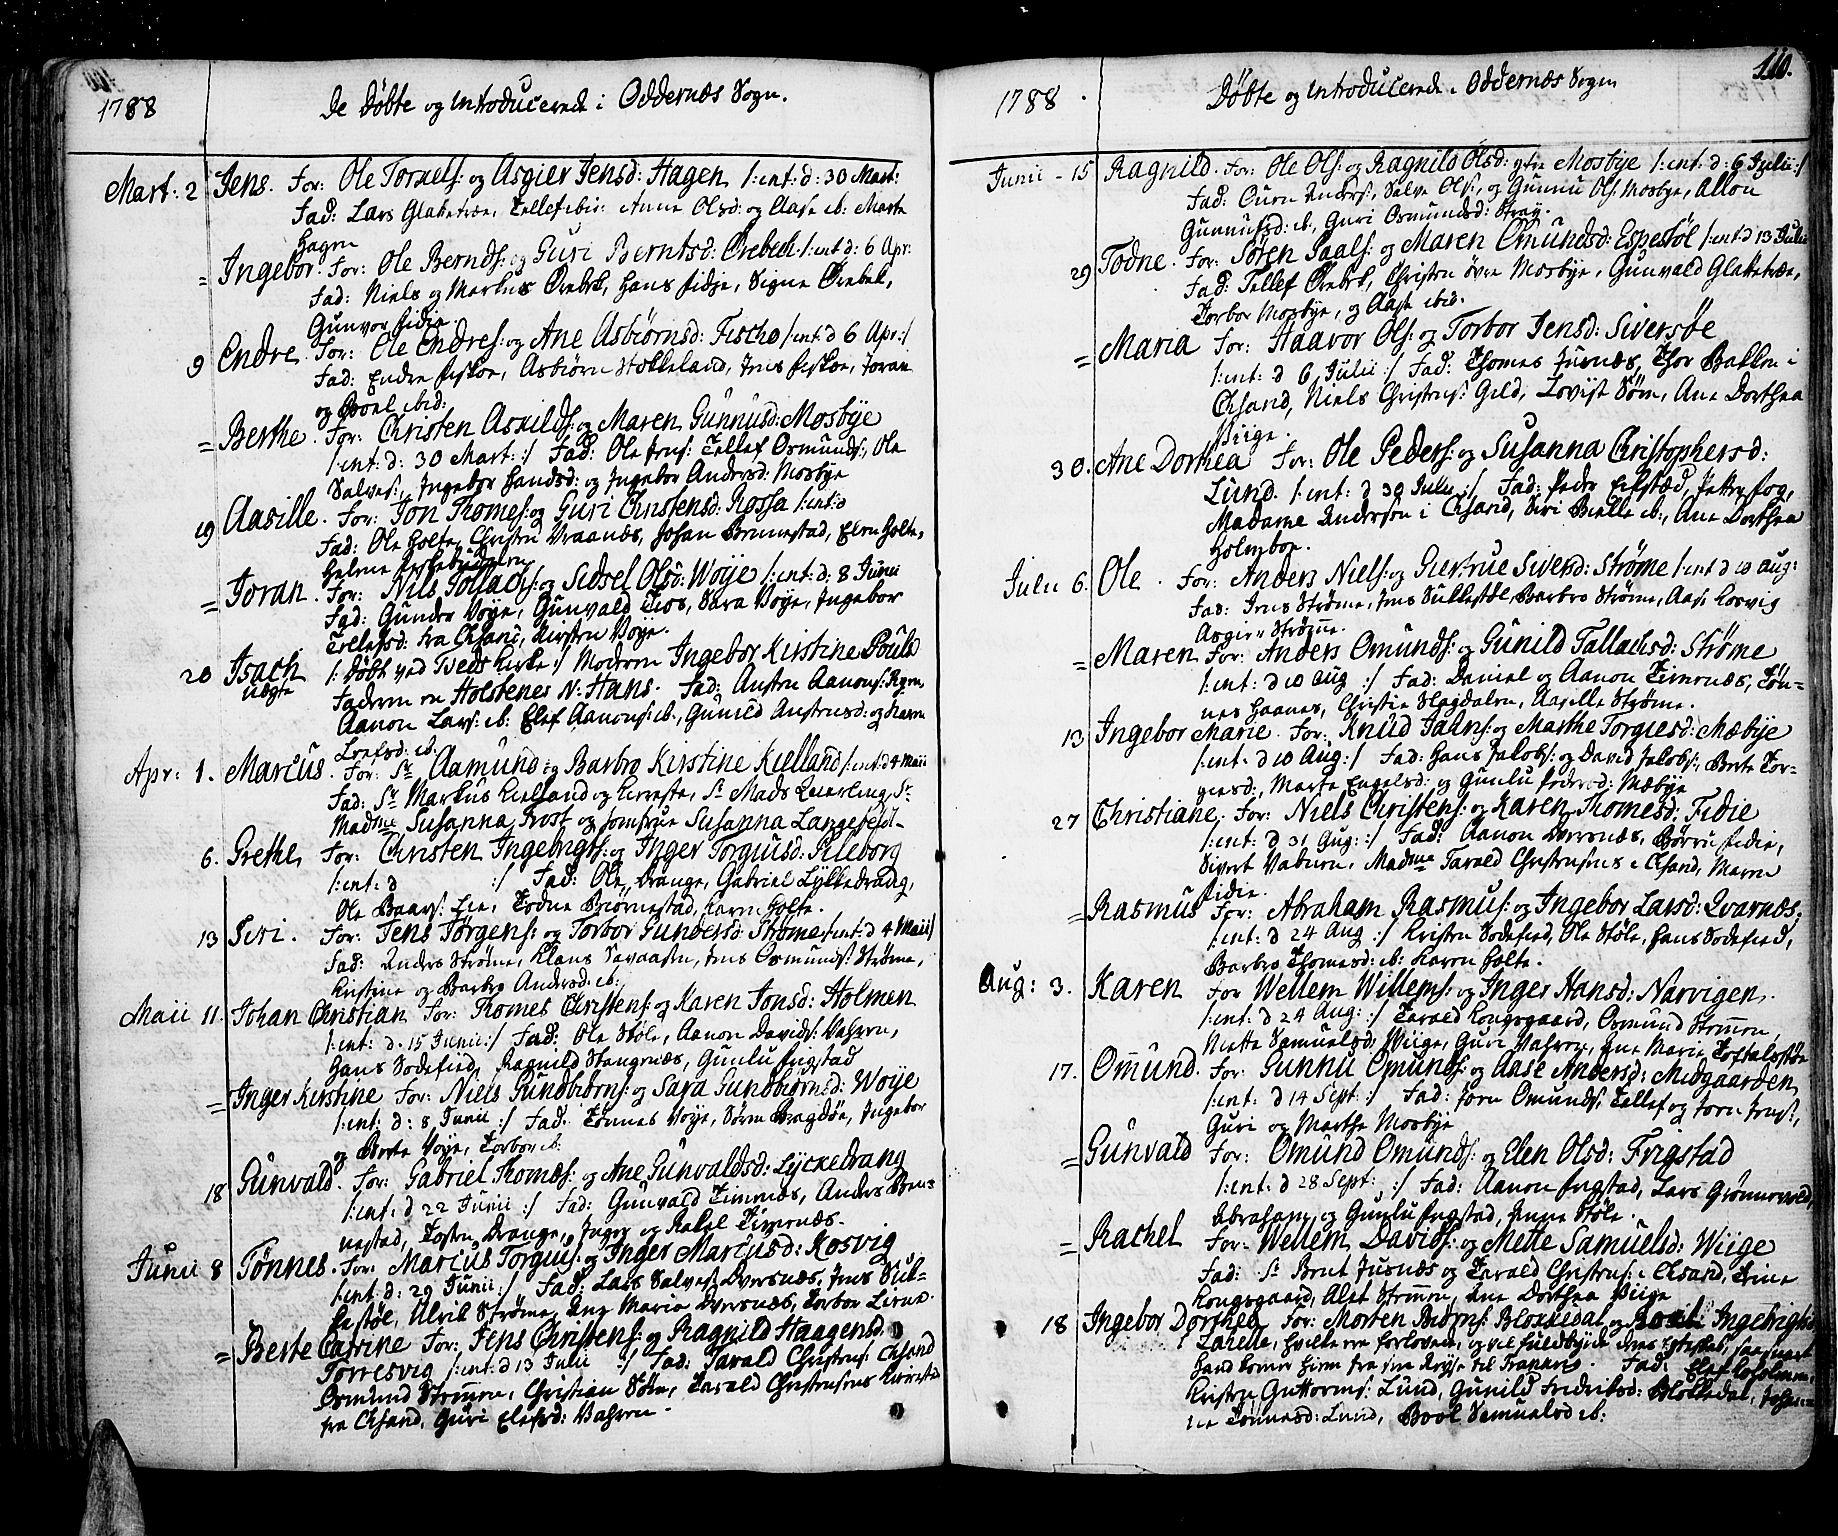 1788
De Döbte og Introducerede i Oddernæs Sogn.
Mart: 2 Jens. For: Ole Tornels: og Asgier Jensd: Hagen /:int: d: 30 Mart:
Fad: Lars Glaketræe, Tellef ibid: Anne Olsd: og Aase ib: Marte
Hagen
= Ingebor. For: Ole Bernds: og Guri Berntsd: Örebech /:int d: 6 Apr:
Fad: Niels og Markus Örebek, Hans Fidje, Signe Örebek,
Gunvor Fidie.
9 Endre. For: Ole Endres: og Ane Asbiörnsd: Fischo /:int d 6 Apr:/
Fad: Endre Fiskoe, Asbiörn Stokkeland, Jens Fiskoe, Joran
og Boel ibid:
= Berthe. For: Christen Askilds: og Maren Gunnusd: Mosbye
/:int: d: 30 Mart: :/ Fad: Ole Jens: Tellef Osmunds:, Ole
Salves:, Ingebor Hansd: og Ingebor Andersd: Mosbye
19 Aasille. For: Jon Thomes: og Guri Christensd: Rossa /:int: d
Fad: Ole Holte, Christen Vraanæs, Johan Brennestad, Elen Holte,
Helene
= Joran. For: Nils Tollacs: og Sidsel Olsd: Woije /:int: d: 8 Junii
Fad: Gunder Voye, Gunvald Kios, Sara Voye, Ingebor
Tellefsd: fra Chsand, Kirsten Voye.
20 Isach /: Döbt ved Tveds Kirke :/ Moderen Ingebor Kirstine Pouls
uægte Faderen en Holstenes N: Hans. Fad: Austen Aanons:
Aanon Lars: ib: Elef Aanons: ib:, Gunild Austensd: og Karen
ib:
Apr: 1. Marcus. For: Sr Aamund og Barbro Kirstine Kielland /:int: d 4 Maii
Fad: Sr Markus Kielland og Kierreste, Sr Mads Leierling, Sr
Madme Susanna Frost og Jomfrue Susanna Langefeld-
6. Grethe, For: Christen Ingebrigts: og Inger Torgiusd: Pileborg
/:int: d :/ Fad: Ole Drange, Gabriel Lykkedrang,
Ole Baars: Lie, Todne Biörnestad, Karen Holte.
13 Siri. For: Jens Jörgens: og Torbor Gundersd: Ströme /:int: d 4 Maii:/
Fad: Anders Ströme, Klaus Savaasen, Jens Osmunds: Ströme,
Kristine og Barbro Andersd: ib:
Maii 11. Johan Christian For: Thomes Christens: og Karen Jonsd: Holmen
/:int: d. 15 Junii:/ Fad: Ole Stöle, Aanon Davids: Vahren,
Hans Sodefied, Ragnild Stangnæs, Gunlu Frigstad
= Inger Kirstine For: Niels Gundbiörns: og Sara Gundbiörnsd: Woije
/:int: d: 8 Junii :/ Fad: Tönnes Voye, Sören Bragdöe, Ingebor
og Berte Voye, Torbor ib:
18 Gunvald. For: Gabriel Thomes: og Ane Gunvaldsd: Lyckedrang
/:int: d 22 Junii :/ Fad: Gunvald Timenæs, Anders Bren-
nestad, Tosten Drange, Inger og Rakel Timenæs.
Junii 8 Tönnes. For: Marcus Torgius: og Inger Marcusd: Kosvig
/:int: d: 29 Junii :/ Fad: Lars Salves: Dversnæs, Jens Sul-
festöl, Ulrik Ströme, Ane Marie Dversnæs, Torbor Liene.
= Berte Catrine For: Jens Christens: og Ragnild Haagensd:
Torresvig /:int: d 13 Julii :/ Fad: Tarald Christens: Chsand
Osmund Strömen, Christian Söm, Tarald Christensens Kierreste
fra Chsand, Guri Elefsd: Vahren.
110.
1788.
Döbte og Introducerede i Oddernæs Sogn
Junii - 15 Ragnild. For: Ole Ols: og Ragnild Olsd: ytre Mosbye /:int: d: 6 Julii:/
Fad: Ouen Anders:, Salve Ols:, og Gunnu Ols: Mosbye, Allou
Gunnufsd: ib, Guri Osmundsd: Stray.
29 Todne. For: Sören Saals: og Maren Omundsd: Espestöl /:int: d 13 Julii
Fad: Tellef Örebek, Christen övre Mosbye, Gunvald Glaketræe,
Torbor Mosbye, og Aase ibid.
= Maria For: Haavor Ols: og Torbor Jensd: Siversöe
/:int: d 6 Julii :/ Fad: Thomes Jusnæs, Thor Bakken i
Chsand, Niels Christens: Gild, Lovise Söm, Ane Dorthea
Viige.
30. Ane Dorthea For: Ole Peders: og Susanna Christophersd:
Lund. /:int: d 30 Julii :/ Fad: Peder Eegstæd, Petter Fog,
Madame Anderson i Chsand, Siri Bielle ib:, Ane Dorthea
Holmboe.
Julii 6. Ole. For: Anders Niels: og Giertrue Siversd: Ströme /:int: d 10 Aug:
Fad: Jens Ströme, Jens Sullestöl, Barbro Ströme, Aase Kosvig
Asgier Ströme.
= Maren For: Anders Omunds: og Gunild Tallacksd: Ströme
/:int: d 10 Aug :/ Fad: Daniel og Aanon Timenæs, Tön-
nes Haanes, Christie Slegdalen, Aasille Ströme.
13 Ingebor Marie. For: Knud Jahns: og Marthe Torgiesd: Mæbye
/:int: d 10 Aug:/ Fad: Hans Jakobs: og David Jakobs:, Berte Tor-
giesd:, Marte Engelsd: og Gunlu Pedersd: Mæbye
27 Christiane. For: Niels Christens: og Karen Thomesd: Fidie
/:int: d 31 Aug: :/ Fad: Aanon Dversnæs, Börre Fidie,
Sivert Vaburn, Madme Tarald Christensens i Chsand, Maren
Fidie.
= Rasmus For: Abraham Rasmus: og Ingebor Larsd: Qvarnæs,
/:int: d 24 Aug :/ Kristen Sodefied, Ole Stöle, Hans Sodefied,
Barbro Thomesd: ib: Karen Holte.
Aug: 3. Karen For Wellem Willems: og Inger Hansd: Narvigen.
/:int: d 24 Aug: :/ Tarald Kongsgaard, Osmund Strömen,
Mette Samuelsd: Wiige, Guri Vahren, Ane Marie Toftelæstöe
17. Omund. For: Gunnu Omunds: og Aase Andersd: Midgaarden
/:int: d 14 Sept: :/ Fad: Jorn Omunds:, Tellef og Jorn Jens:,
Guri og Marthe Mosbye
= Gunvald For: Omund Omunds: og Elen Olsd: Frigstad
/:int: d 28 Sept: :/ Fad: Aanon Frigstad, Lars Grönnevold,
Abraham og Gunlu Frigstad, Anne Stöle.
= Rachel For: Wellem Davids: og Mette Samuelsd: Wiige
Fad: Sr Brut Jusnæs og Tarald Christens: i Chsand, Trine
Kongsgaard, Alet Strömen, Ane Dorthea Wiige
18 Ingebor Dorthea For: Morten Biörns: Blokkedal og Ingebrigts
Zarelle, hvilke ere forlovede, og vil fuldbyrde deres Egteskab, saasnart
hand komer hiem fra sin Reyse til Trankeb. Fad:
Kristen Guttorms: Lund, Gunild Fredriksd: Blokkedal, Johan-
ne Tönnesd: Lund, Boel Samuelsd ib: